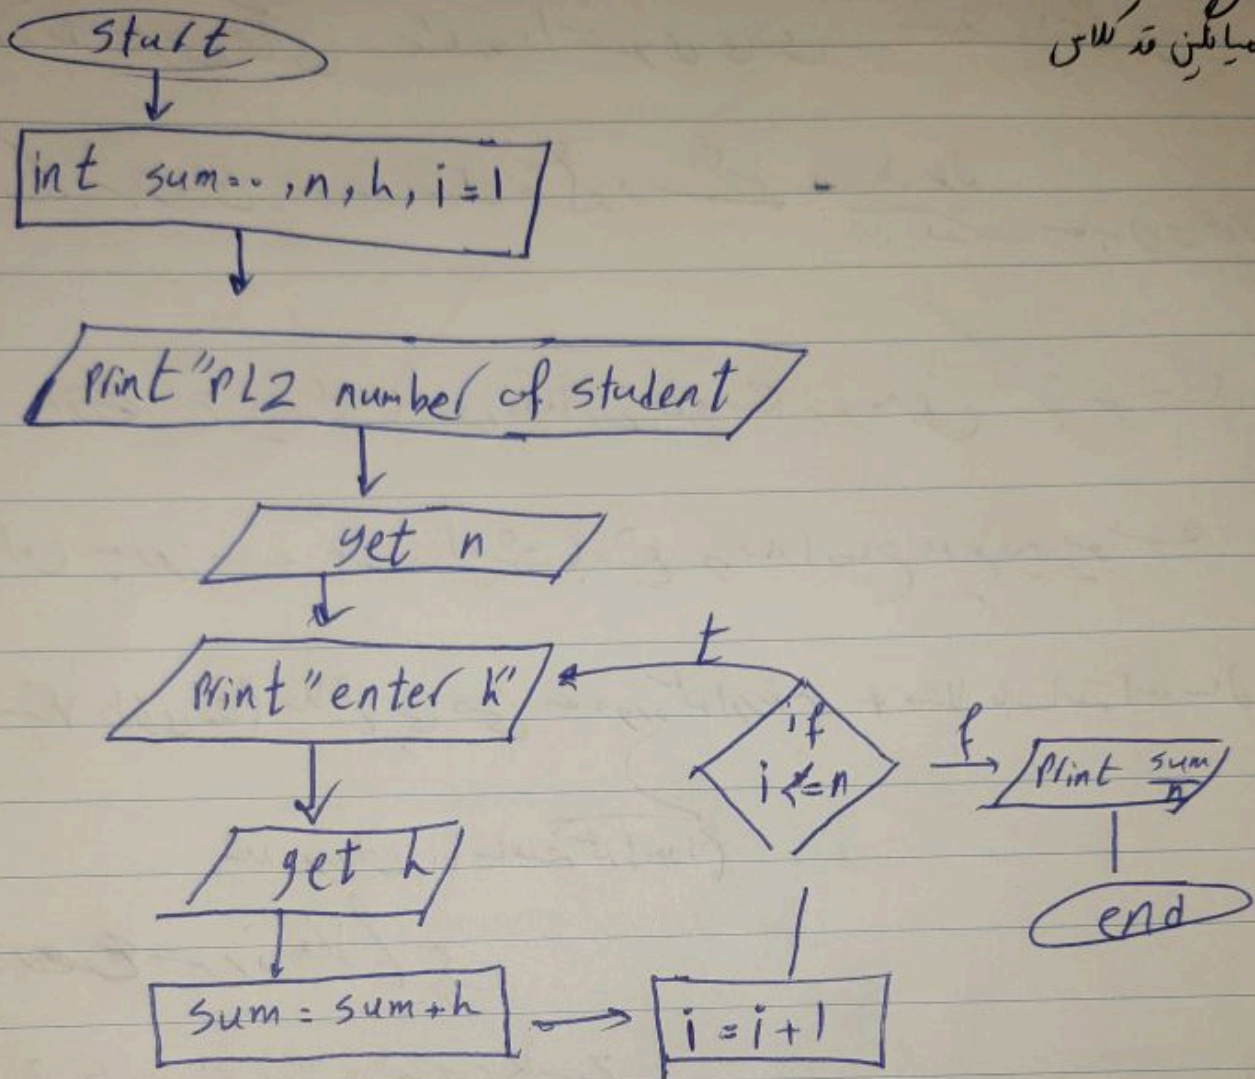 میانگین قد کلاس
start
int sum=۰, n, h, i=1
print "PLZ number of student
get n
print "enter h"
get h
sum = sum+h
i = i+1
if
i <= n
t
f
print sum/n
end